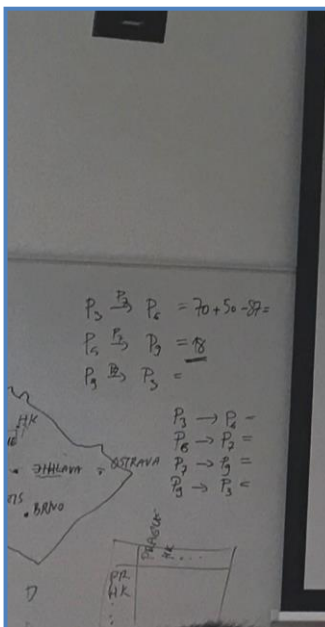 P₃ →P₂ P₆ = 70 + 50 - 87 =
P₆ →P₂ P₉ = 18
P₉ → P₃ =
P₃ → P₆ =
P₆ → P₂ =
P₂ → P₉ =
P₉ → P₃ =
HK
JIHLAVA
OSTRAVA
BRNO
PRAGUE
HK
. . . .
PR
HK